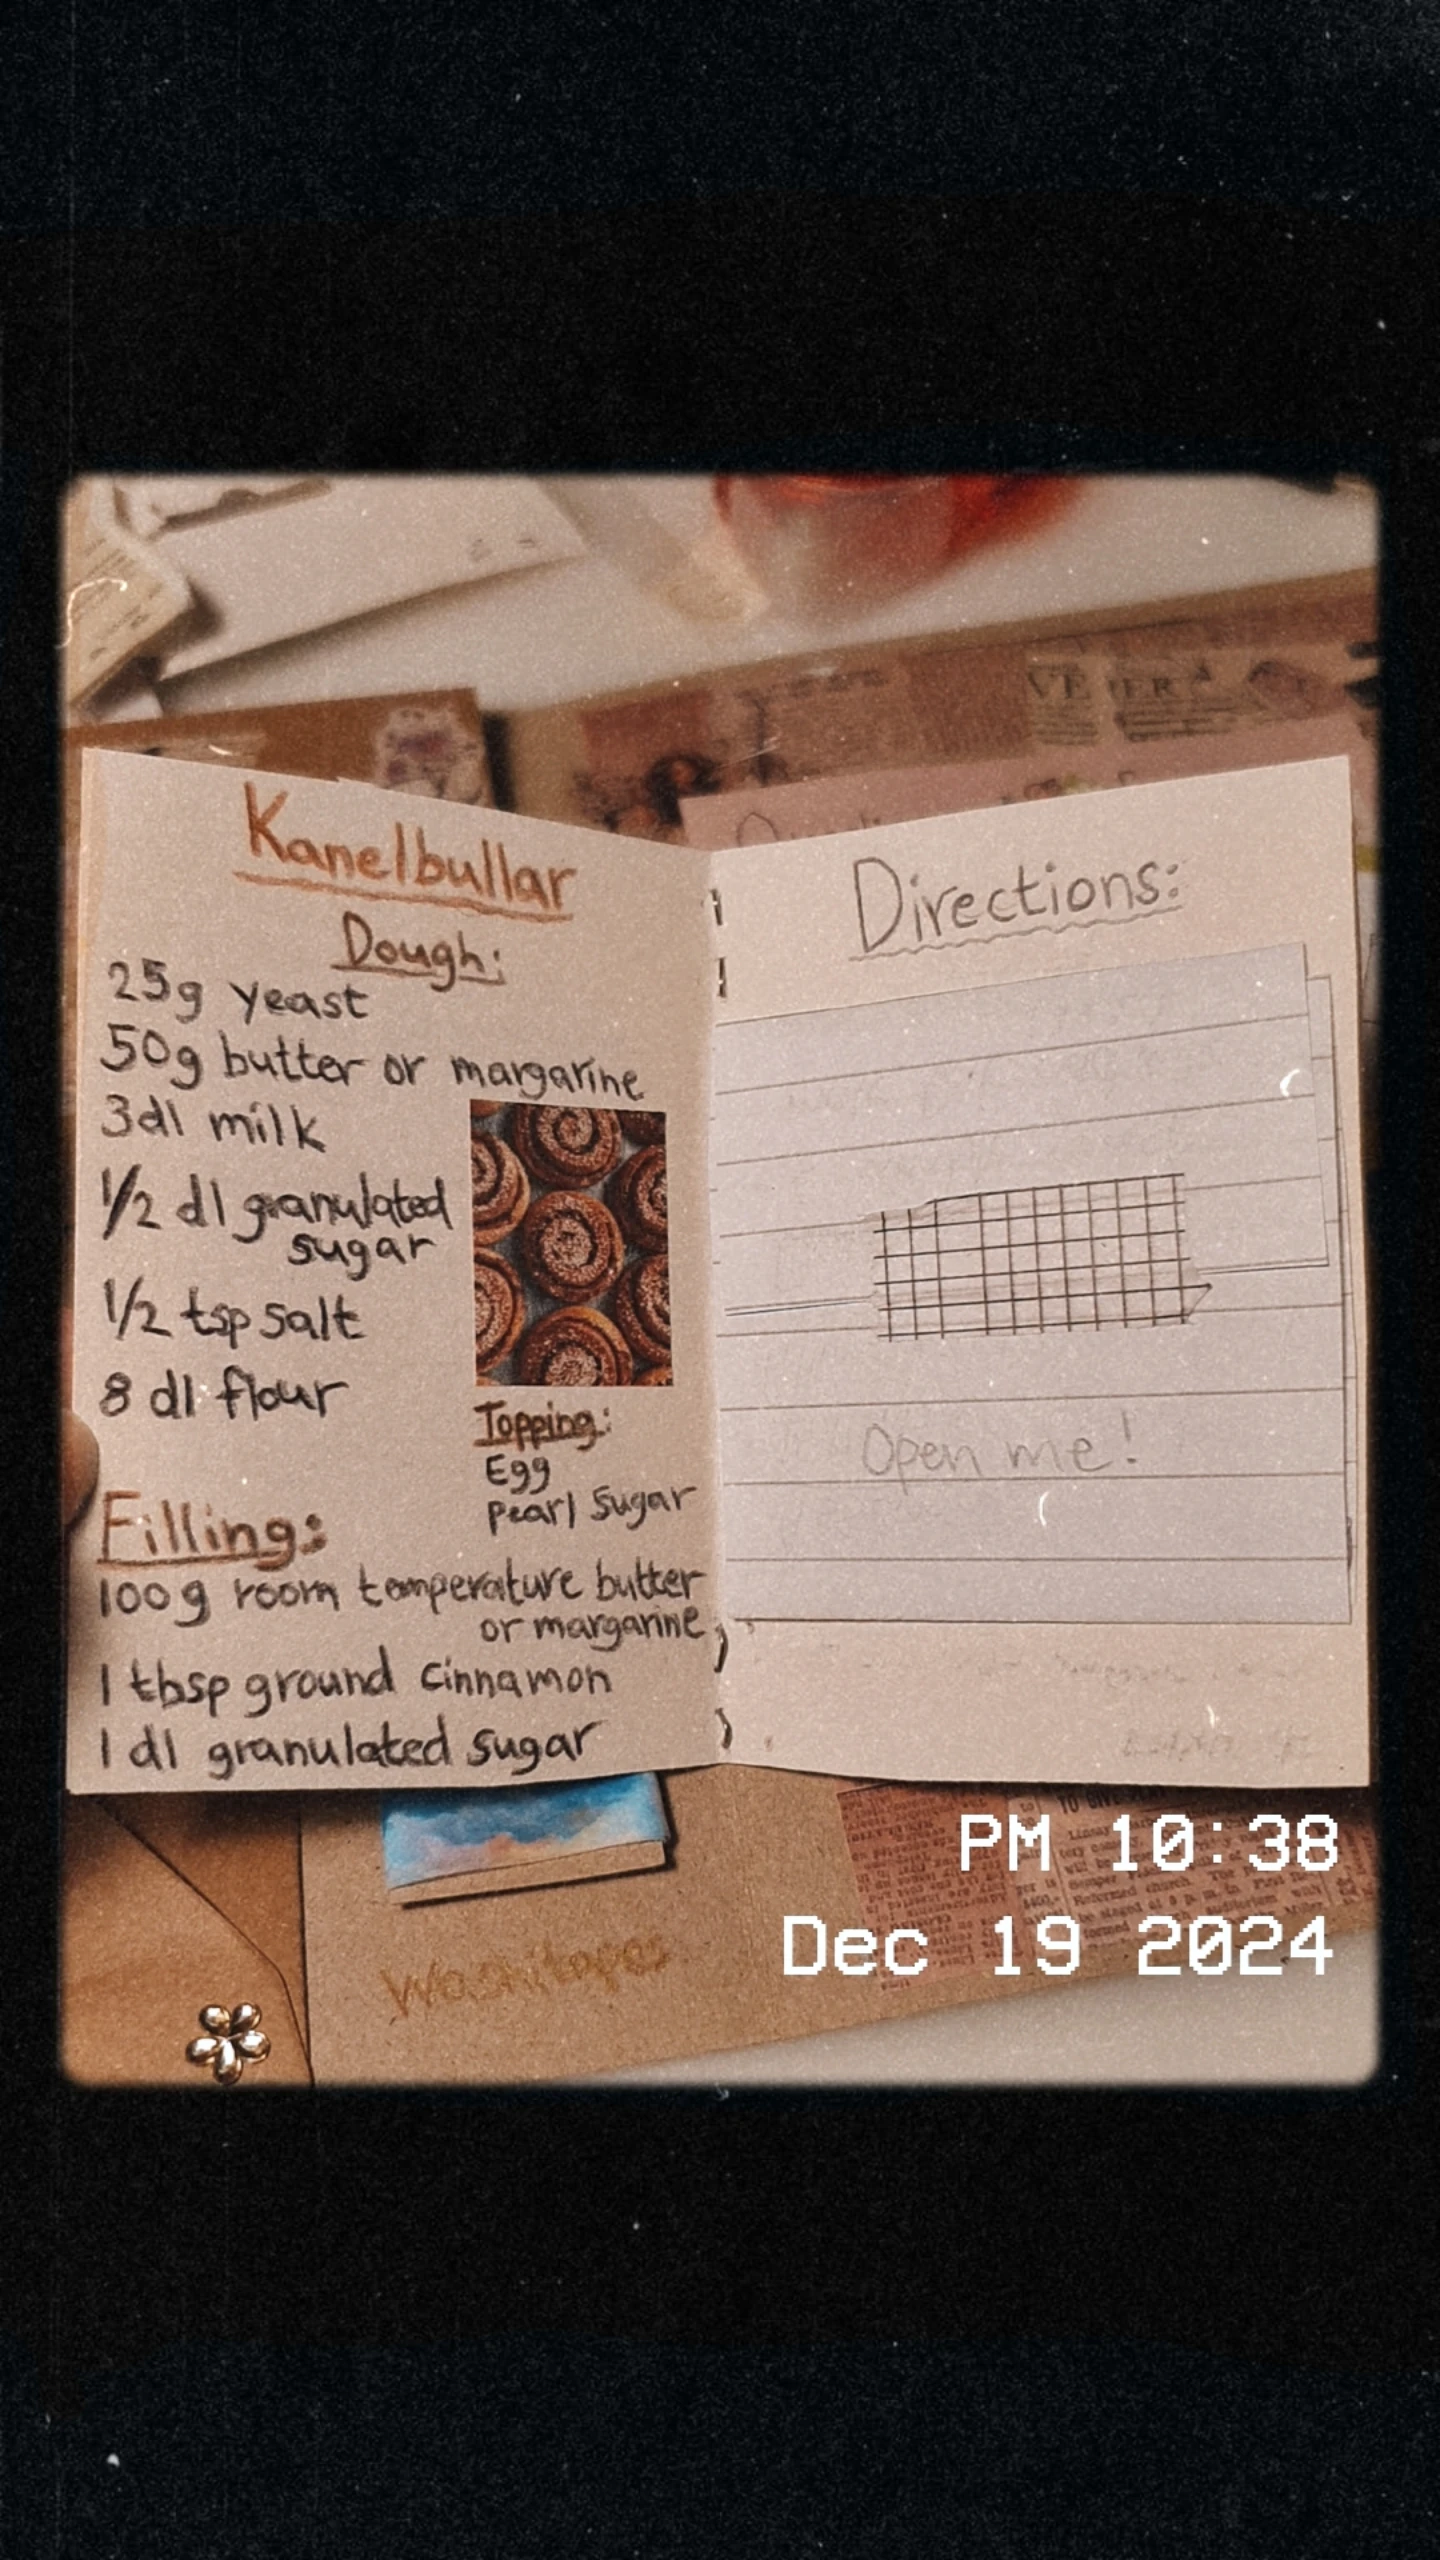 Kanelbullar
Dough:
25g yeast
50g butter or margarine
3dl milk
1/2 dl granulated
sugar
1/2 tsp salt
8 dl flour
Topping:
Egg
Pearl Sugar
Filling:
100g room temperature butter
or margarine
1 tbsp ground cinnamon
1 dl granulated sugar
Directions:
Open me!
PM 10:38
Dec 19 2024
Washitapes